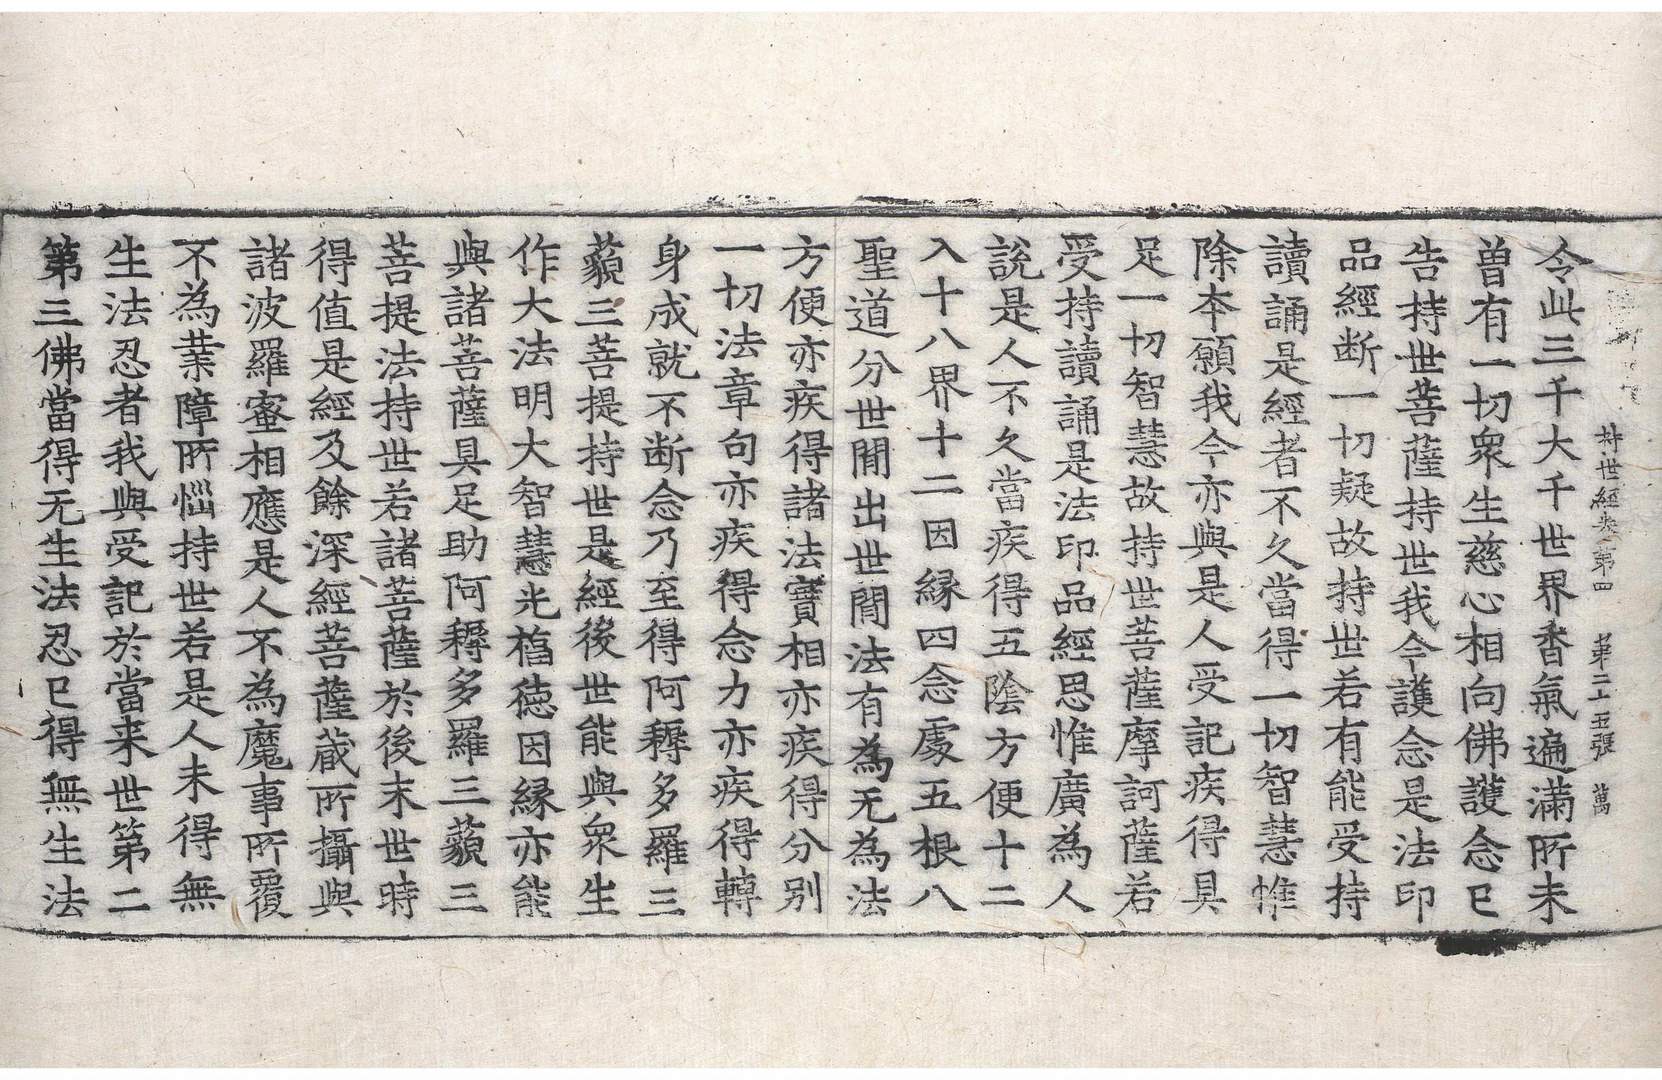 持世經卷第四　第二十五張　萬
令此三千大千世界香氣遍滿所未
曽有一切衆生慈心相向佛護念已
告持世菩薩持世我今護念是法印
品經断一切疑故持世若有能受持
讀誦是經者不久當得一切智慧惟
除本願我今亦與是人受記疾得具
足一切智慧故持世菩薩摩訶薩若
受持讀誦是法印品經思惟廣為人
說是人不久當疾得五陰方便十二
入十八界十二因縁四念處五根八
聖道分世閒出世閒法有為无為法
方便亦疾得諸法實相亦疾得分别
一切法章句亦疾得念力亦疾得轉
身成就不断念乃至得阿耨多羅三
藐三菩提持世是經後世能與衆生
作大法明大智慧光植徳因縁亦能
與諸菩薩具足助阿耨多羅三藐三
菩提法持世若諸菩薩於後末世時
得值是經及餘深經菩薩蔵所攝與
諸波羅蜜相應是人不為魔事所覆
不為業障所惱持世若是人未得無
生法忍者我與受記於當来世第二
第三佛當得无生法忍已得無生法